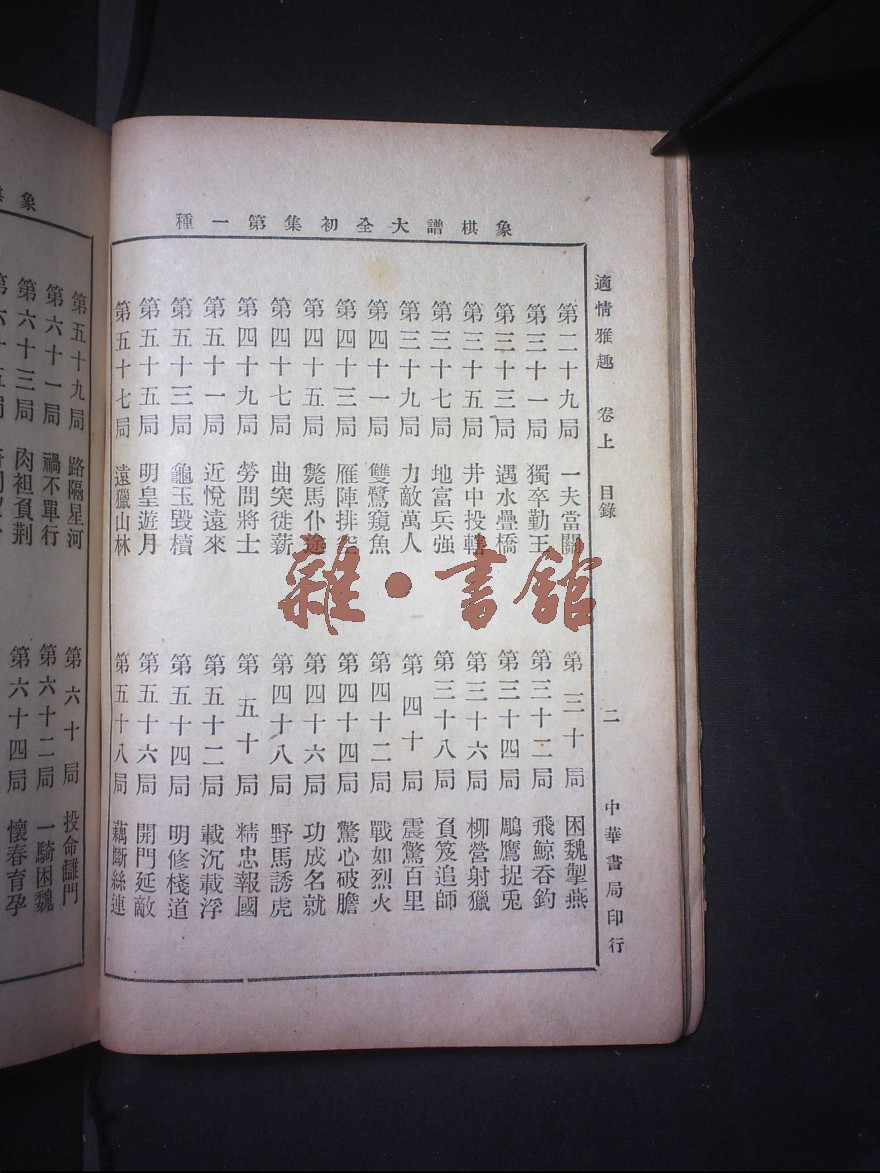 象棋譜大全初集第一種
適情雅趣　卷上　目錄　二　中華書局印行
第二十九局　一夫當關　第三十局　困魏掣燕
第三十一局　獨卒勤王　第三十二局　飛鯨吞釣
第三十三局　遇水疊橋　第三十四局　鵰鷹捉兎
第三十五局　井中投轄　第三十六局　柳營射獵
第三十七局　地富兵强　第三十八局　負笈追師
第三十九局　力敵萬人　第四十局　震驚百里
第四十一局　雙鷺窺魚　第四十二局　戰如烈火
第四十三局　雁陣排空　第四十四局　驚心破膽
第四十五局　斃馬仆途　第四十六局　功成名就
第四十七局　曲突徙薪　第四十八局　野馬誘虎
第四十九局　勞問將士　第五十局　精忠報國
第五十一局　近悅遠來　第五十二局　載沉載浮
第五十三局　龜玉毀櫝　第五十四局　明修棧道
第五十五局　明皇遊月　第五十六局　開門延敵
第五十七局　遠獵山林　第五十八局　藕斷絲連
雜·書館
象
第五十九局　路隔星河　第六十局　投命讎門
第六十一局　禍不單行　第六十二局　一騎困魏
第六十三局　肉袒負荆　第六十四局　懷春育孕